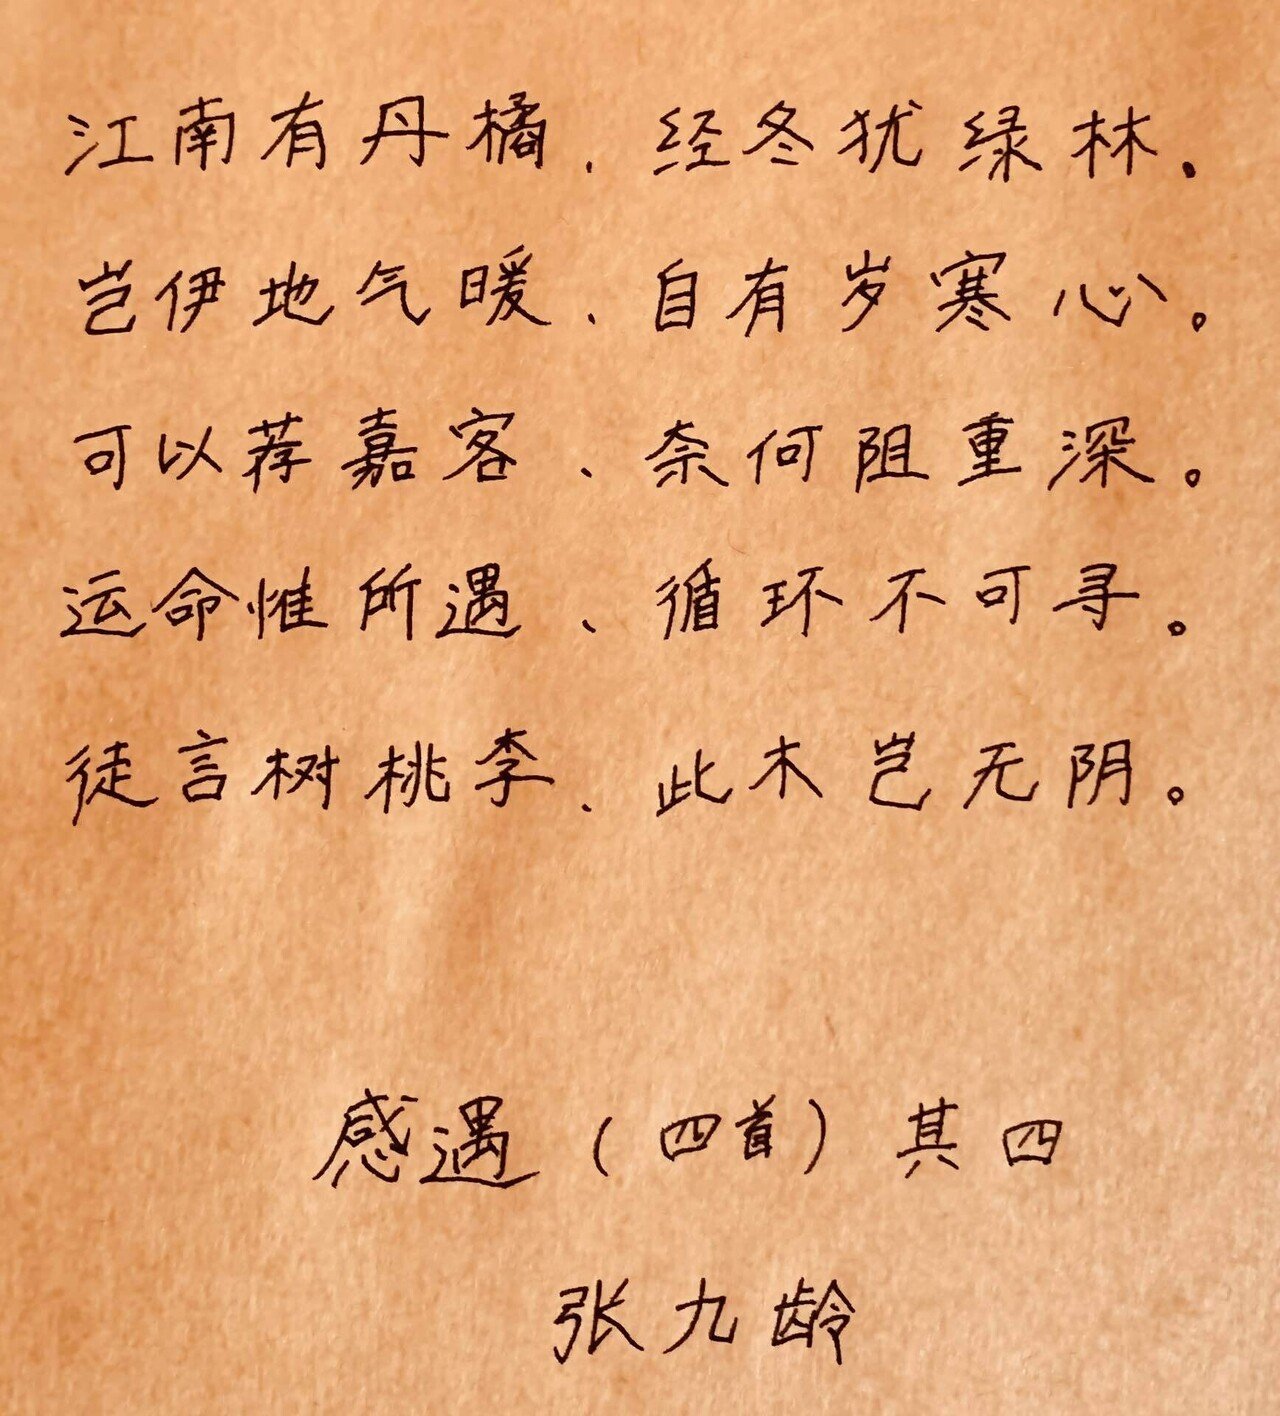 江南有丹橘、经冬犹绿林.
岂伊地气暖、自有岁寒心。
可以荐嘉客、奈何阻重深。
运命惟所遇、循环不可寻。
徒言树桃李、此木岂无阴。
感遇(四首)其四
张九龄